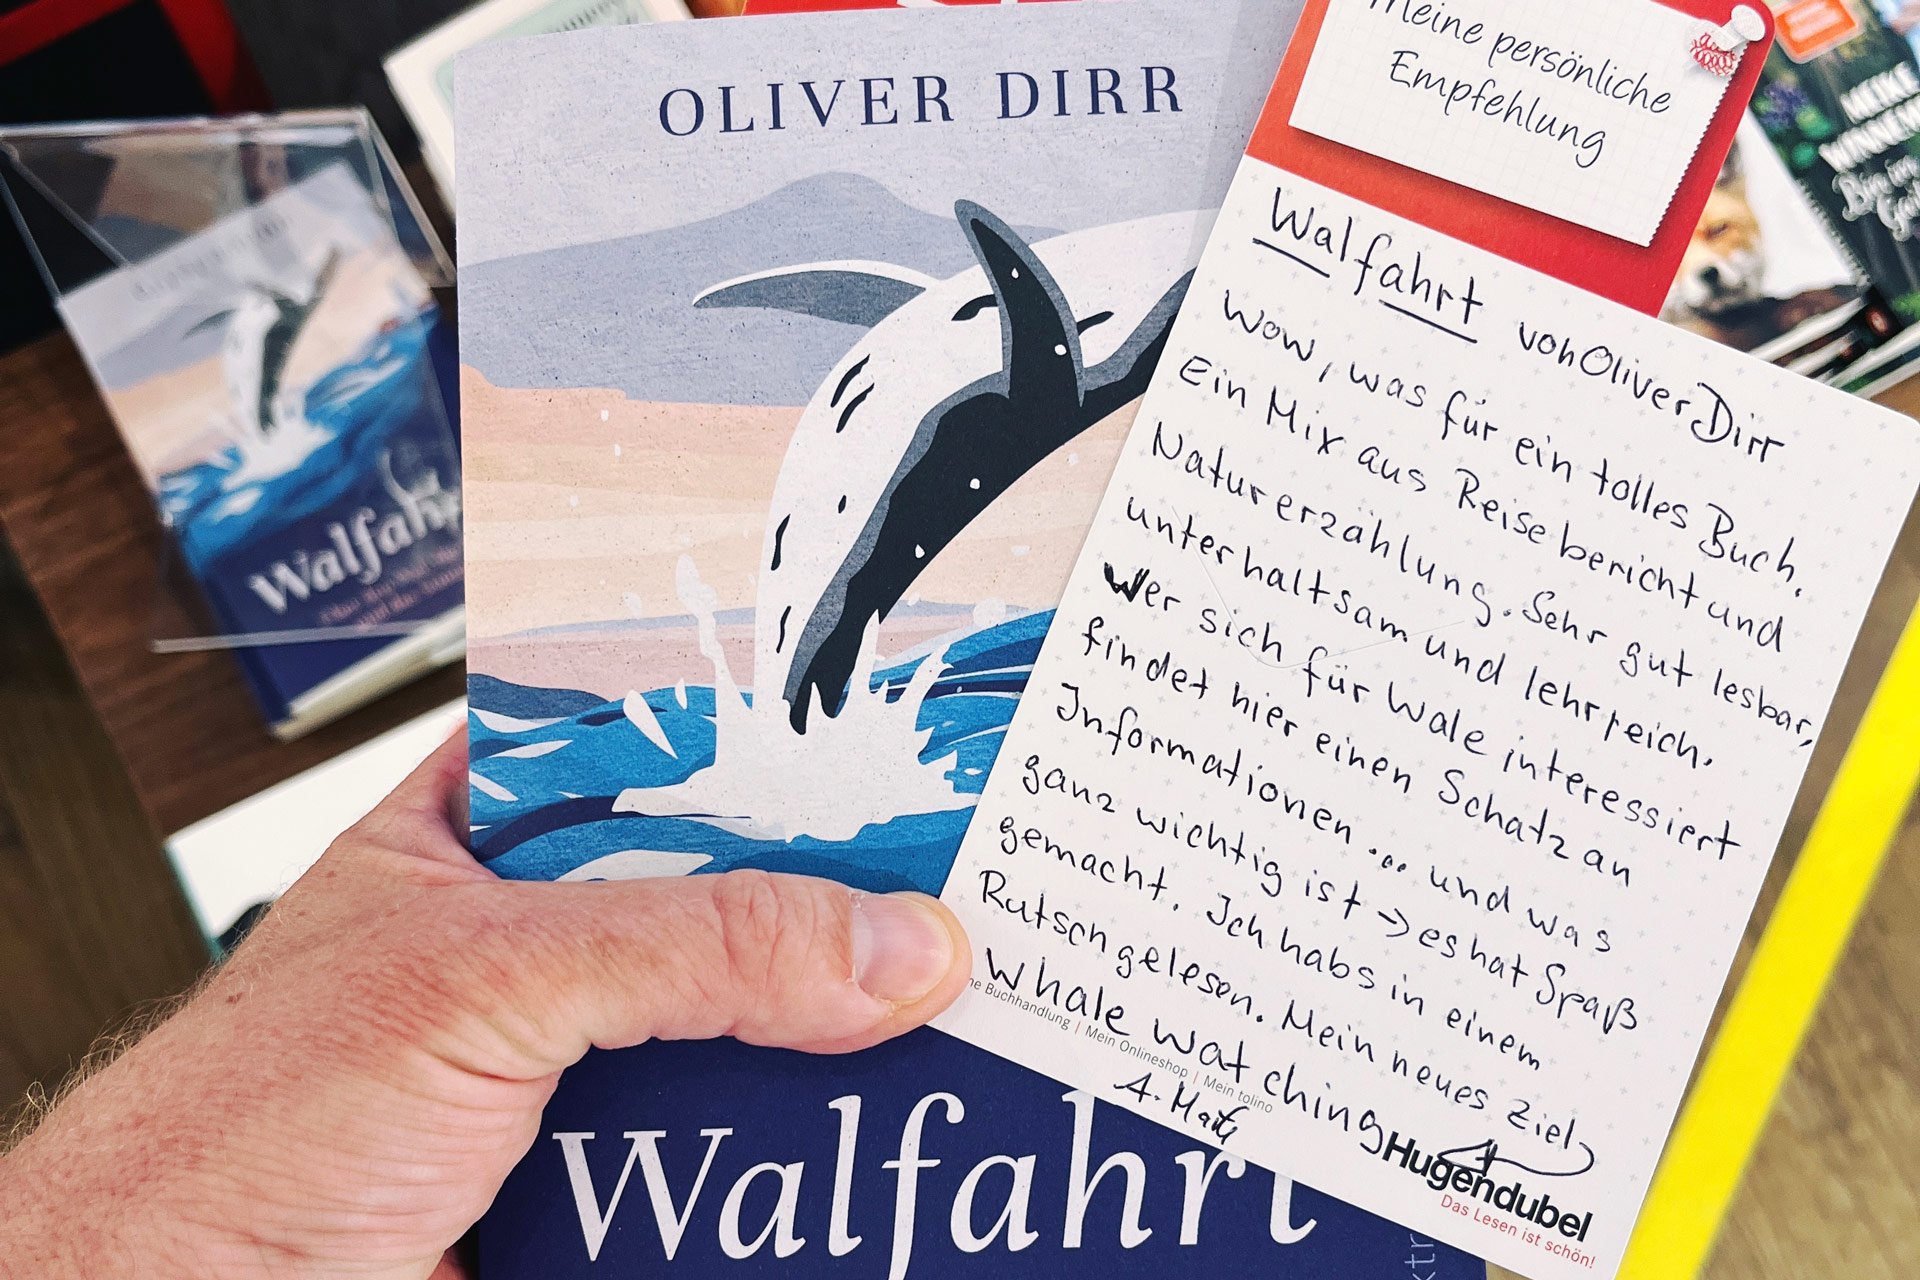 OLIVER DIRR
Walfahrt
Meine persönliche
Empfehlung
Walfahrt von Oliver Dirr
Wow, was für ein tolles Buch.
Ein Mix aus Reisebericht und
Naturerzählung. Sehr gut lesbar,
unterhaltsam und lehrreich.
Wer sich für Wale interessiert
findet hier einen Schatz an
Informationen ... und was
ganz wichtig ist → es hat Spaß
gemacht. Ich habs in einem
Rutsch gelesen. Mein neues Ziel
whale watching
Buchhandlung | Mein Onlineshop | Mein tolino
A.
Hugendubel
Das Lesen ist schön!
Walfahrt
MEIKE